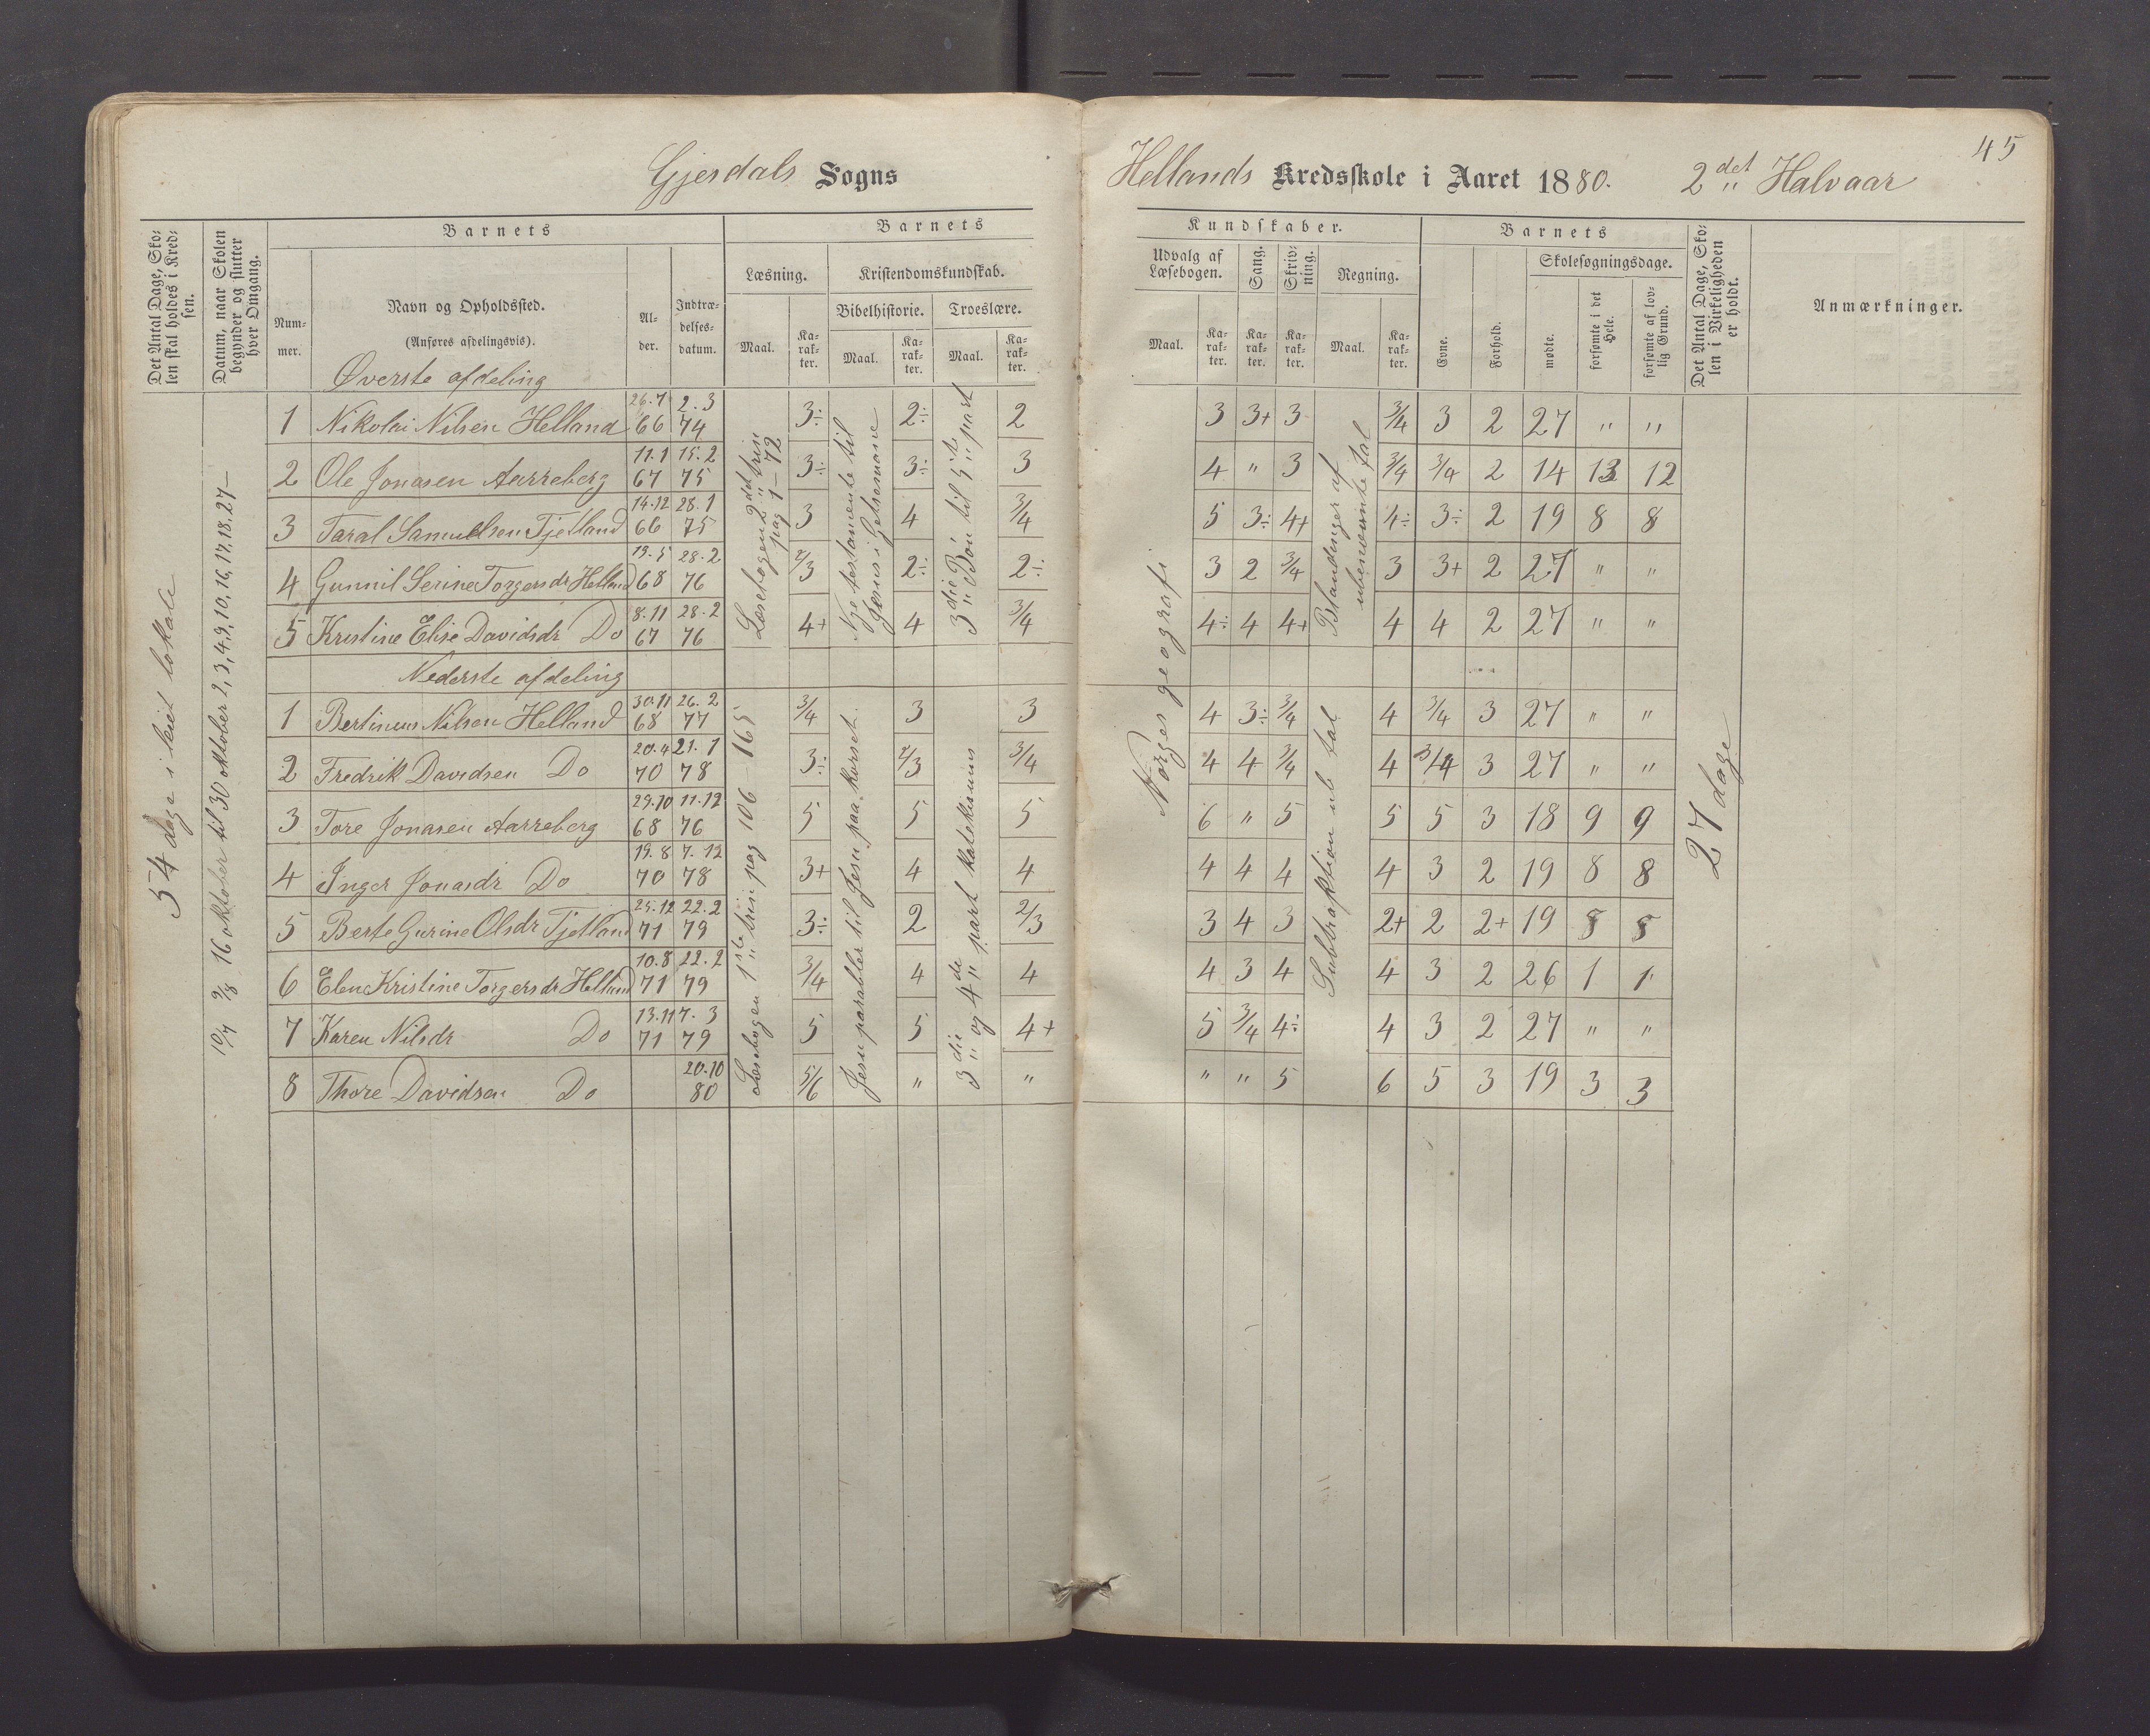 45
Gjesdals Sogns Hellands Kredsskole i Aaret 1880. 2det Halvaar
Det Antal Dage, Skolen skal holdes i Kredsen.
Datum, naar Skolen begynder og slutter hver Omgang.
Barnets
Barnets
Kundskaber.
Barnets
Det Antal Dage, Skolen i Virkeligheden er holdt.
Anmærkninger.
Nummer.
Navn og Opholdssted.
(Anføres afdelingsvis).
Alder.
Indtrædelsesdatum.
Læsning.
Kristendomskundskab.
Bibelhistorie.
Troeslære.
Udvalg af Læsebogen.
Sang.
Skrivning.
Regning.
Evne.
Forhold.
Skolesøgningsdage.
mødte.
forsømte i det Hele.
forsømte af lovlig Grund.
Maal. Karakter. Maal. Karakter. Maal. Karakter. Maal. Karakter. Karakter. Karakter. Maal. Karakter.
54 dage i leiet lokale
16 oktober til 30 oktober 2,3,4,9,10,16,17,18,27-
27 dage
Norges geografi
Øverste afdeling
Læsebogen 2det trin pag 1-72
Nye testamente til Jesus i Getsemane
3die Bøn til 5te part
Blandinger af ubenævnte tal
1 Nikolai Nilsen Helland 26.7 66 2.3 74 3÷ 2÷ 2 3 3+ 3 3/4 3 2 27 " "
2 Ole Jonasen Aarreberg 11.1 67 15.2 75 3÷ 3÷ 3 4 " 3 3/4 3/4 2 14 13 12
3 Taral Samuelsen Tjetland 14.12 66 28.1 75 3 4 3/4 5 3÷ 4+ 4÷ 3÷ 2 19 8 8
4 Gunnil Serine Torgersdr Helland 19.5 68 28.2 76 2/3 2÷ 2÷ 3 2 3/4 3 3+ 2 27 " "
5 Kristine Elise Davidsdr Do 8.11 67 28.2 76 4+ 4 3/4 4÷ 4 4+ 4 4 2 27 " "
Nederste afdeling
Læsebogen 1ste trin pag 106 165
Jesu parabler til Jesu paa korset.
3die og 4de part katekismus
Subtraktion ub tal
1 Bertinius Nilsen Helland 30.11 68 26.2 77 3/4 3 3 4 3÷ 3/4 4 3/4 3 27 " "
2 Fredrik Davidsen Do 20.4 70 21.1 78 3÷ 2/3 3/4 4 4 3/4 4 3/4 3 27 " "
3 Tore Jonasen Aarreberg 29.10 68 11.12 76 5 5 5 6 " 5 5 5 3 18 9 9
4 Inger Jonasdr Do 19.8 70 7.12 78 3+ 4 4 4 4 4 4 3 2 19 8 8
5 Berte Gurine Olsdr Tjetland 25.12 71 22.2 79 3÷ 2 2/3 3 4 3 2+ 2 2+ 19 8 8
6 Elen Kristine Torgersdr Helland 10.8 71 22.2 79 3/4 4 4 4 3 4 4 3 2 26 1 1
7 Karen Nilsdr Do 13.11 71 7.3 79 5 5 4+ 5 3/4 4÷ 4 3 2 27 " "
8 Thore Davidsen Do 20.10 80 5/6 " " " " 5 6 5 3 19 3 3